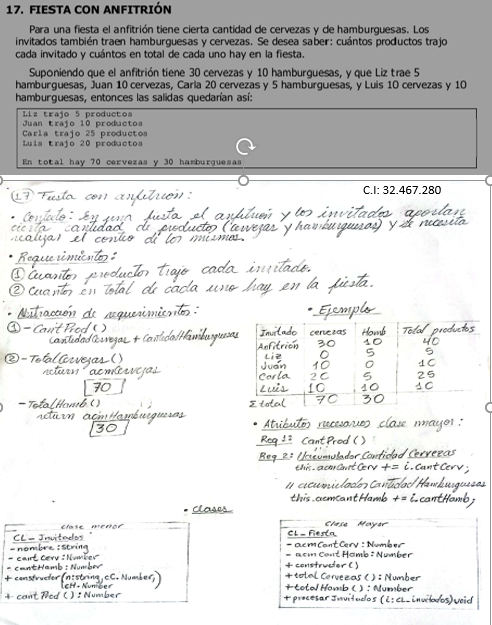 17. FIESTA CON ANFITRIÓN
Para una fiesta el anfitrión tiene cierta cantidad de cervezas y de hamburguesas. Los
invitados también traen hamburguesas y cervezas. Se desea saber: cuántos productos trajo
cada invitado y cuántos en total de cada uno hay en la fiesta.
Suponiendo que el anfitrión tiene 30 cervezas y 10 hamburguesas, y que Liz trae 5
hamburguesas, Juan 10 cervezas, Carla 20 cervezas y 5 hamburguesas, y Luis 10 cervezas y 10
hamburguesas, entonces las salidas quedarían así:
Liz trajo 5 productos
Juan trajo 10 productos
Carla trajo 25 productos
Luis trajo 20 productos
En total hay 70 cervezas y 30 hamburguesas
C.I: 32.467.280
17 Fiesta con anfitrión:
• Contexto: En una fiesta el anfitrión y los invitados aportan
cierta cantidad de productos (cervezas y hamburguesas) y se necesita
realizar el conteo de los mismos.
• Requerimientos:
① Cuantos productos trajo cada invitado.
② Cuantos en total de cada uno hay en la fiesta.
• Abstracción de requerimientos:
①- CantProd ( )
cantidadCervezas + CantidadHamburguesas
②- TotalCervezas ( )
return acmCervezas
70
- TotalHamb ( )
return acmHamburguesas
30
• Ejemplo
Invitado cervezas Hamb Total productos
Anfitrión 30 10 40
Liz 0 5 5
Juan 10 0 10
Carla 20 5 25
Luis 10 10 20
Σ total 70 30
• Atributos necesarios clase mayor:
Req 1: CantProd ( )
Req 2: // Acumulador Cantidad Cervezas
this.acmCantCerv += i.cantCerv;
// acumulador Cantidad Hamburguesas
this.acmCantHamb += i.cantHamb;
• clases
clase menor
CL - Invitados
- nombre : String
- cant Cerv : Number
- cantHamb : Number
+ constructor (n: string, cC. Number,
cH. Number)
+ cant Prod ( ) : Number
clase Mayor
CL - Fiesta
- acmCantCerv : Number
- acm Cant Hamb : Number
+ constructor ( )
+ total Cervezas ( ) : Number
+ total Hamb ( ) : Number
+ procesar Invitados (i: CL - invitados) void